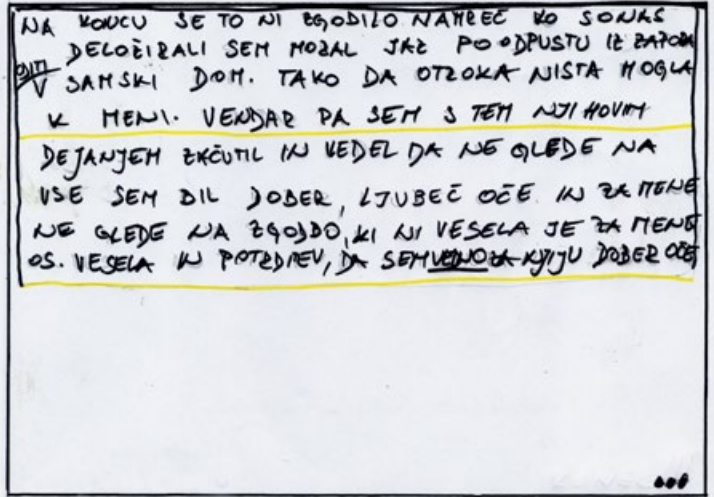 NA KONCU SE TO NI ZGODILO NAMREČ KO SO NAS
DELOŽIRALI SEM MORAL JAZ PO ODPUSTU IZ ZAPORA
ODITI
V SAMSKI DOM. TAKO DA OTROKA NISTA MOGLA
K MENI. VENDAR PA SEM S TEM NJIHOVIM
DEJANJEM ZAČUTIL IN VEDEL DA NE GLEDE NA
VSE SEM BIL DOBER, LJUBEČ OČE IN ZA MENE
NE GLEDE NA ZGODBO, KI NI VESELA JE ZA MENE
OS. VESELA IN POTRDITEV, DA SEM VEDNO ZA NJIJU DOBER OČE